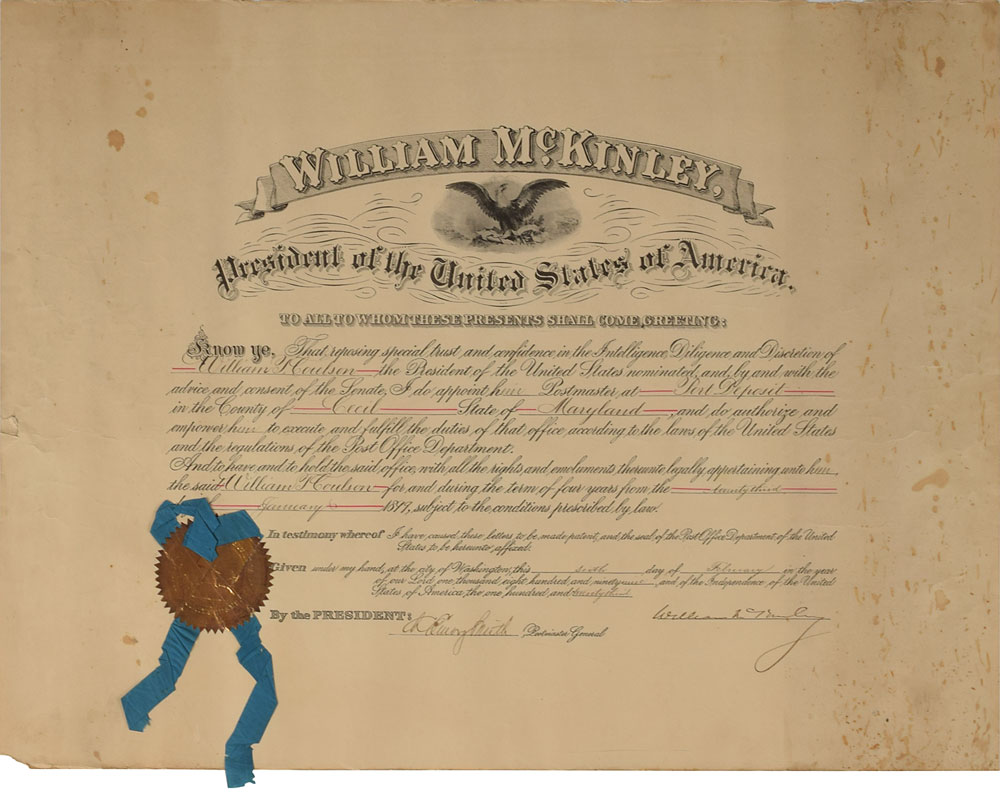 WILLIAM McKINLEY,
President of the United States of America.
TO ALL TO WHOM THESE PRESENTS SHALL COME, GREETING:
Know ye, That, reposing special trust and confidence in the Intelligence, Diligence and Discretion of
William F Coulson the President of the United States nominated, and, by and with the
advice and consent of the Senate, I do appoint him Postmaster at Port Deposit
in the County of Cecil State of Maryland, and do authorize and
empower him to execute and fulfill the duties of that office according to the laws of the United States
and the regulations of the Post Office Department.
And to have and to hold the said office, with all the rights and emoluments thereunto legally appertaining unto him
the said William F Coulson for and during the term of four years from the twenty third
January 1899, subject to the conditions prescribed by law.
In testimony whereof I have caused these letters to be made patent, and the seal of the Post Office Department of the United
States to be hereunto affixed.
Given under my hand, at the city of Washington, this sixth day of February in the year
of our Lord one thousand eight hundred and ninety nine and of the Independence of the United
States of America, the one hundred and twenty third
By the PRESIDENT:
William McKinley
Ch Emory Smith Postmaster General